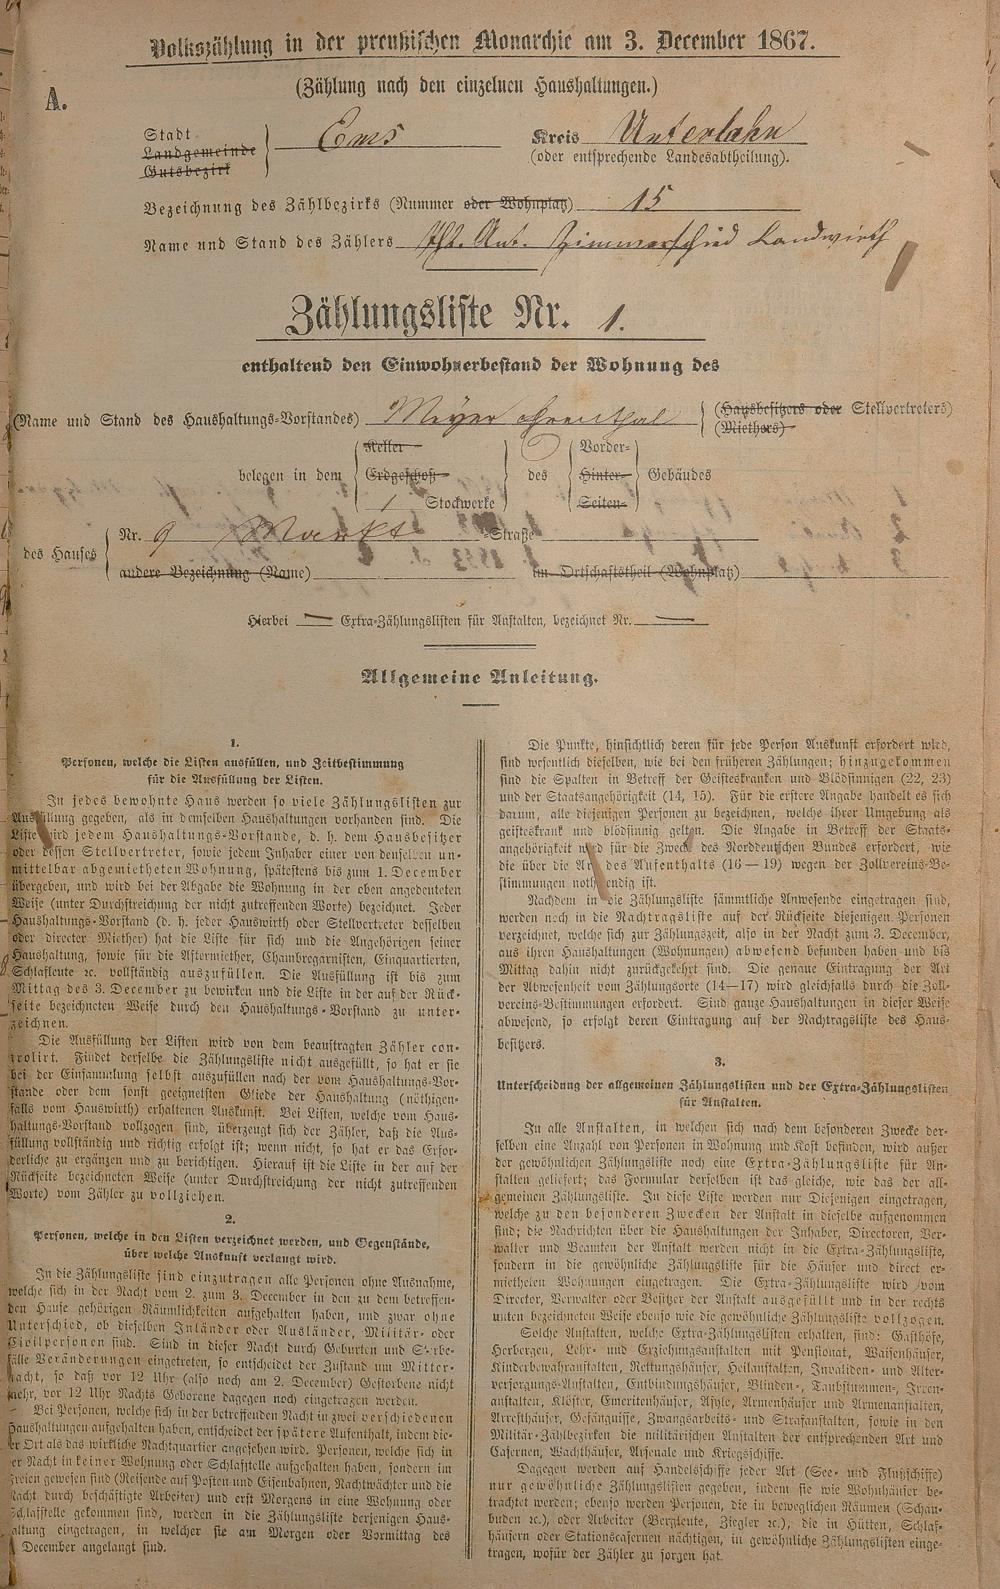 Volkszählung in der preußischen Monarchie am 3. December 1867.
(Zählung nach den einzelnen Haushaltungen.)
A.
Stadt
Landgemeinde
Gutsbezirk
Ems
Kreis Unterlahn
(oder entsprechende Landesabtheilung).
Bezeichnung des Zählbezirks (Nummer oder Wohnplatz) 15
Name und Stand des Zählers Ph. Ant. Zimmerschied Landwirth
Zählungsliste Nr. 1.
enthaltend den Einwohnerbestand der Wohnung des
(Name und Stand des Haushaltungs-Vorstandes) Meyer
(Hausbesitzers oder Stellvertreters)
(Miethers)
belegen in dem
Keller
Erdgeschoß
1 Stockwerke
des
Vorder-
Hinter-
Seiten-
Gebäudes
des Hauses
Nr. 9 Markt -Straße
andere Bezeichnung (Name) im Ortschaftstheil (Wohnplatz)
Hierbei — Extra-Zählungslisten für Anstalten, bezeichnet Nr. —
Allgemeine Anleitung.
1.
Personen, welche die Listen ausfüllen, und Zeitbestimmung
für die Ausfüllung der Listen.
In jedes bewohnte Haus werden so viele Zählungslisten zur
Ausfüllung gegeben, als in demselben Haushaltungen vorhanden sind. Die
Liste wird jedem Haushaltungs-Vorstande, d. h. dem Hausbesitzer
oder dessen Stellvertreter, sowie jedem Inhaber einer von denselben un-
mittelbar abgemietheten Wohnung, spätestens bis zum 1. December
übergeben, und wird bei der Abgabe die Wohnung in der oben angedeuteten
Weise (unter Durchstreichung der nicht zutreffenden Worte) bezeichnet. Jeder
Haushaltungs-Vorstand (d. h. jeder Hauswirth oder Stellvertreter desselben
oder directer Miether) hat die Liste für sich und die Angehörigen seiner
Haushaltung, sowie für die Aftermiether, Chambregarnisten, Einquartierten,
Schlafleute ꝛc. vollständig auszufüllen. Die Ausfüllung ist bis zum
Mittag des 3. December zu bewirken und die Liste in der auf der Rück-
seite bezeichneten Weise durch den Haushaltungs-Vorstand zu unter-
zeichnen.
Die Ausfüllung der Listen wird von dem beauftragten Zähler con-
trolirt. Findet derselbe die Zählungsliste nicht ausgefüllt, so hat er sie
bei der Einsammlung selbst auszufüllen nach der vom Haushaltungs-Vor-
stande oder dem sonst geeignetsten Gliede der Haushaltung (nöthigen-
falls vom Hauswirth) erhaltenen Auskunft. Bei Listen, welche vom Haus-
haltungs-Vorstand vollzogen sind, überzeugt sich der Zähler, daß die Aus-
füllung vollständig und richtig erfolgt ist; wenn nicht, so hat er das Erfor-
derliche zu ergänzen und zu berichtigen. Hierauf ist die Liste in der auf der
Rückseite bezeichneten Weise (unter Durchstreichung der nicht zutreffenden
Worte) vom Zähler zu vollziehen.
2.
Personen, welche in den Listen verzeichnet werden, und Gegenstände,
über welche Auskunft verlangt wird.
In die Zählungsliste sind einzutragen alle Personen ohne Ausnahme,
welche sich in der Nacht vom 2. zum 3. December in den zu dem betreffen-
den Hause gehörigen Räumlichkeiten aufgehalten haben, und zwar ohne
Unterschied, ob dieselben Inländer oder Ausländer, Militär- oder
Civilpersonen sind. Sind in dieser Nacht durch Geburten und Sterbe-
fälle Veränderungen eingetreten, so entscheidet der Zustand um Mitter-
nacht, so daß vor 12 Uhr (also noch am 2. December) Gestorbene nicht
mehr, vor 12 Uhr Nachts Geborene dagegen noch eingetragen werden.
Bei Personen, welche sich in der betreffenden Nacht in zwei verschiedenen
Haushaltungen aufgehalten haben, entscheidet der spätere Aufenthalt, indem die-
ser Ort als das wirkliche Nachtquartier angesehen wird. Personen, welche sich in
der Nacht in keiner Wohnung oder Schlafstelle aufgehalten haben, sondern im
Freien gewesen sind (Reisende auf Posten und Eisenbahnen, Nachtwächter und die
Nacht durch beschäftigte Arbeiter) und erst Morgens in eine Wohnung oder
Schlafstelle gekommen sind, werden in die Zählungsliste derjenigen Haus-
haltung eingetragen, in welcher sie am Morgen oder Vormittag des
December angelangt sind.
Die Punkte, hinsichtlich deren für jede Person Auskunft erfordert wird,
sind wesentlich dieselben, wie bei den früheren Zählungen; hinzugekommen
sind die Spalten in Betreff der Geisteskranken und Blödsinnigen (22, 23)
und der Staatsangehörigkeit (14, 15). Für die erstere Angabe handelt es sich
darum, alle diejenigen Personen zu bezeichnen, welche ihrer Umgebung als
geisteskrank und blödsinnig gelten. Die Angabe in Betreff der Staats-
angehörigkeit wird für die Zwecke des Norddeutschen Bundes erfordert, wie
die über die Art des Aufenthalts (16—19) wegen der Zollvereins-Be-
stimmungen nothwendig ist.
Nachdem in die Zählungsliste sämmtliche Anwesende eingetragen sind,
werden noch in die Nachtragsliste auf der Rückseite diejenigen Personen
verzeichnet, welche sich zur Zählungszeit, also in der Nacht zum 3. December,
aus ihren Haushaltungen (Wohnungen) abwesend befunden haben und bis
Mittag dahin nicht zurückgekehrt sind. Die genaue Eintragung der Art
der Abwesenheit vom Zählungsorte (14—17) wird gleichfalls durch die Zoll-
vereins-Bestimmungen erfordert. Sind ganze Haushaltungen in dieser Weise
abwesend, so erfolgt deren Eintragung auf der Nachtragsliste des Haus-
besitzers.
3.
Unterscheidung der allgemeinen Zählungslisten und der Extra-Zählungslisten
für Anstalten.
In alle Anstalten, in welchen sich nach dem besonderen Zwecke der-
selben eine Anzahl von Personen in Wohnung und Kost befinden, wird außer
der gewöhnlichen Zählungsliste noch eine Extra-Zählungsliste für An-
stalten geliefert; das Formular derselben ist das gleiche, wie das der all-
gemeinen Zählungsliste. In diese Liste werden nur Diejenigen eingetragen,
welche zu den besonderen Zwecken der Anstalt in dieselbe aufgenommen
sind; die Nachrichten über die Haushaltungen der Inhaber, Directoren, Ver-
walter und Beamten der Anstalt werden nicht in die Extra-Zählungsliste,
sondern in die gewöhnliche Zählungsliste für die Häuser und direct er-
mietheten Wohnungen eingetragen. Die Extra-Zählungsliste wird vom
Director, Verwalter oder Besitzer der Anstalt ausgefüllt und in der rechts
unten bezeichneten Weise ebenso wie die gewöhnliche Zählungsliste vollzogen.
Solche Anstalten, welche Extra-Zählungslisten erhalten, sind: Gasthöfe,
Herbergen, Lehr- und Erziehungsanstalten mit Pensionat, Waisenhäuser,
Kinderbewahranstalten, Rettungshäuser, Heilanstalten, Invaliden- und Alter-
versorgungs-Anstalten, Entbindungshäuser, Blinden-, Taubstummen-, Irren-
anstalten, Klöster, Emeritenhäuser, Asyle, Armenhäuser und Armenanstalten,
Arresthäuser, Gefängnisse, Zwangsarbeits- und Strafanstalten, sowie in den
Militär-Zählbezirken die militärischen Anstalten der entsprechenden Art und
Casernen, Wachthäuser, Arsenale und Kriegsschiffe.
Dagegen werden auf Handelsschiffe jeder Art (See- und Flußschiffe)
nur gewöhnliche Zählungslisten gegeben, indem sie wie Wohnhäuser be-
trachtet werden; ebenso werden Personen, die in beweglichen Räumen (Schau-
buden ꝛc.), oder Arbeiter (Bergleute, Ziegler ꝛc.), die in Hütten, Schlaf-
häusern oder Stationscasernen nächtigen, in gewöhnliche Zählungslisten einge-
tragen, wofür der Zähler zu sorgen hat.